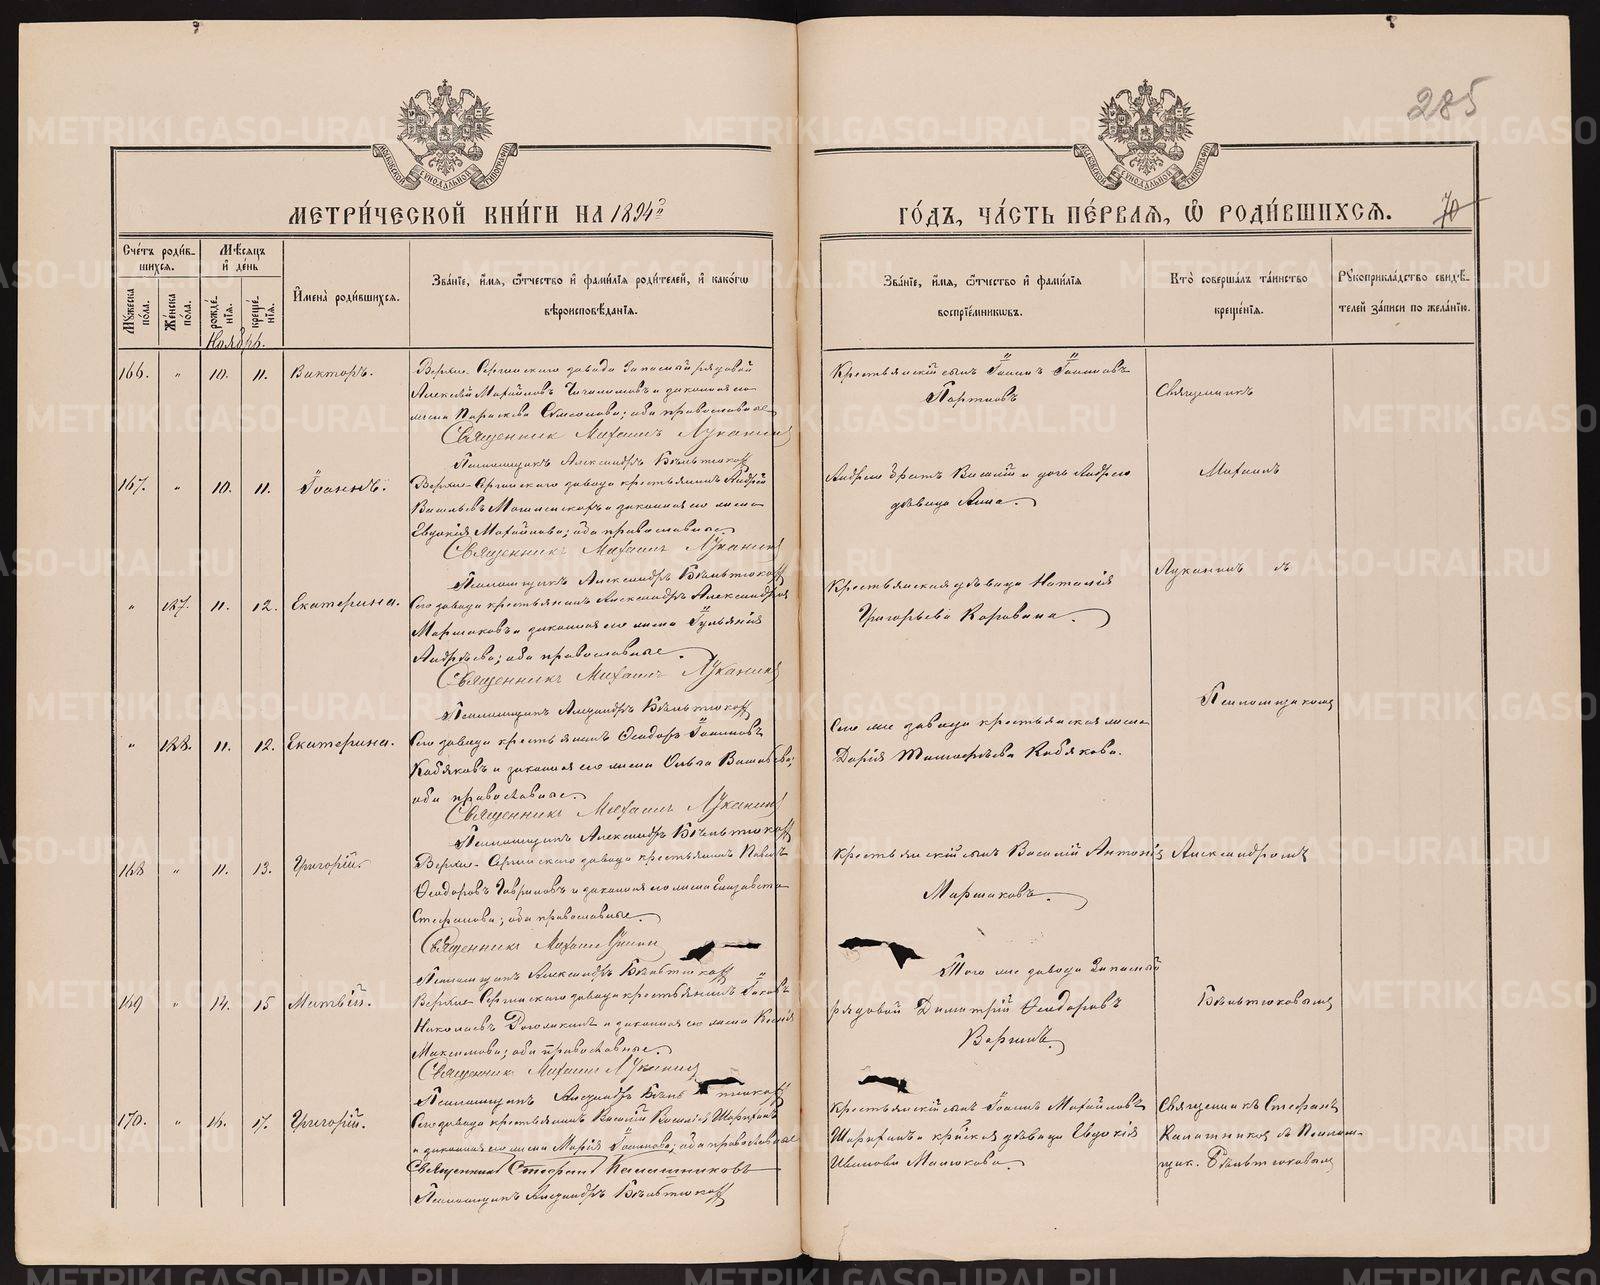 285
МЕТРИ́ЧЕСКОЙ КНИ́ГИ НА 1894
ГО́ДЪ, ЧА́СТЬ ПЕ́РВАѦ, Ѿ РОДИ́ВШИХСѦ.
70
Сче́тъ роди́вшихсѧ.
Мꙋжеска по́ла.
Же́нска по́ла.
Мѣ́сѧцъ и҆ де́нь
рожде́нїѧ.
креще́нїѧ.
И҆мена̀ роди́вшихсѧ.
Зва́нїе, и҆́мѧ, ѻ҆́тчество и҆ фами́лїѧ роди́телей, и҆ како́гѡ
вѣроисповѣ́данїѧ.
Зва́нїе, и҆́мѧ, ѻ҆́тчество и҆ фами́лїѧ
воспрїе́мникѡвъ.
Кто̀ соверша́лъ та́инство
креще́нїѧ.
Рꙋкоприкла́дство свидѣ́телей за́писи по жела́нїю.
Ноябрь.
166. " 10. 11. Викторъ.
Верхне-Сергинскаго завода запасный рядовой
Алексѣй Михайловъ и законная его
жена Параскева Симеонова; оба православные
Священникъ Михаилъ Луканинъ
Псаломщикъ Александръ Бѣльтюковъ
Крестьянскій сынъ Іоаннъ Іоанновъ
Портновъ
Священникъ
167. " 10. 11. Іоаннъ.
Верхне-Сергинскаго завода крестьянинъ Андрей
Васильевъ и законная его жена
Евдокія Михайлова; оба православные
Священникъ Михаилъ Луканинъ
Псаломщикъ Александръ Бѣльтюковъ
Андрею братъ Василій и дочь Андрею
дѣвица Анна.
Михаилъ
" 127. 11. 12. Екатерина.
Сего завода крестьянинъ Александръ Александровъ
Маршаковъ и законная его жена Іульянія
Андреева; оба православные.
Священникъ Михаилъ Луканинъ
Псаломщикъ Александръ Бѣльтюковъ
Крестьянская дѣвица Наталія
Григорьева Коровина.
Луканинъ съ
" 128. 11. 12. Екатерина.
Сего завода крестьянинъ Ѳеодоръ Іоанновъ
Кабяковъ и законная его жена Ольга Васильева;
оба православные.
Священникъ Михаилъ Луканинъ
Псаломщикъ Александръ Бѣльтюковъ
Сего же завода крестьянская жена
Дарія Тимофѣева Кабякова.
Псаломщикомъ
168 " 11. 13. Григорій.
Верхне-Сергинскаго завода крестьянинъ Павелъ
Ѳеодоровъ Гавриловъ и законная его жена Елизавета
Стефанова; оба православные.
Священникъ Михаилъ
Псаломщикъ Александръ Бѣльтюковъ
Крестьянскій сынъ Василій Антоніевъ
Маршаковъ.
Александромъ
169 " 14. 15 Матвѣй.
Верхне-Сергинскаго завода крестьянинъ Іаковъ
Николаевъ и законная его жена Ксенія
Максимова; оба православные.
Священникъ Михаилъ Луканинъ
Псаломщикъ Александръ Бѣльтюковъ
Того же завода запасный
рядовой Димитрій Ѳеодоровъ
Бѣльтюковымъ
170. " 16. 17. Григорій.
Сего завода крестьянинъ Василій Васильевъ Шарихинъ
и законная его жена Марія Іоаннова; оба православные
Священникъ Стефанъ Калашниковъ
Псаломщикъ Александръ Бѣльтюковъ
Крестьянскій сынъ Іоаннъ Михайловъ
Шарихинъ и дѣвица Евдокія
Иванова
Священникъ Стефанъ
Калашниковъ съ Псалом-
щик. Бѣльтюковымъ